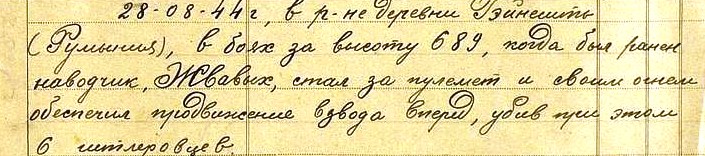 28-08-44 г, в р-не деревни Гэинешть
(Румыния), в боях за высоту 689, когда был ранен
наводчик, Жвавых, стал за пулемет и своим огнем
обеспечил продвижение взвода вперед, убив при этом
6 гитлеровцев.